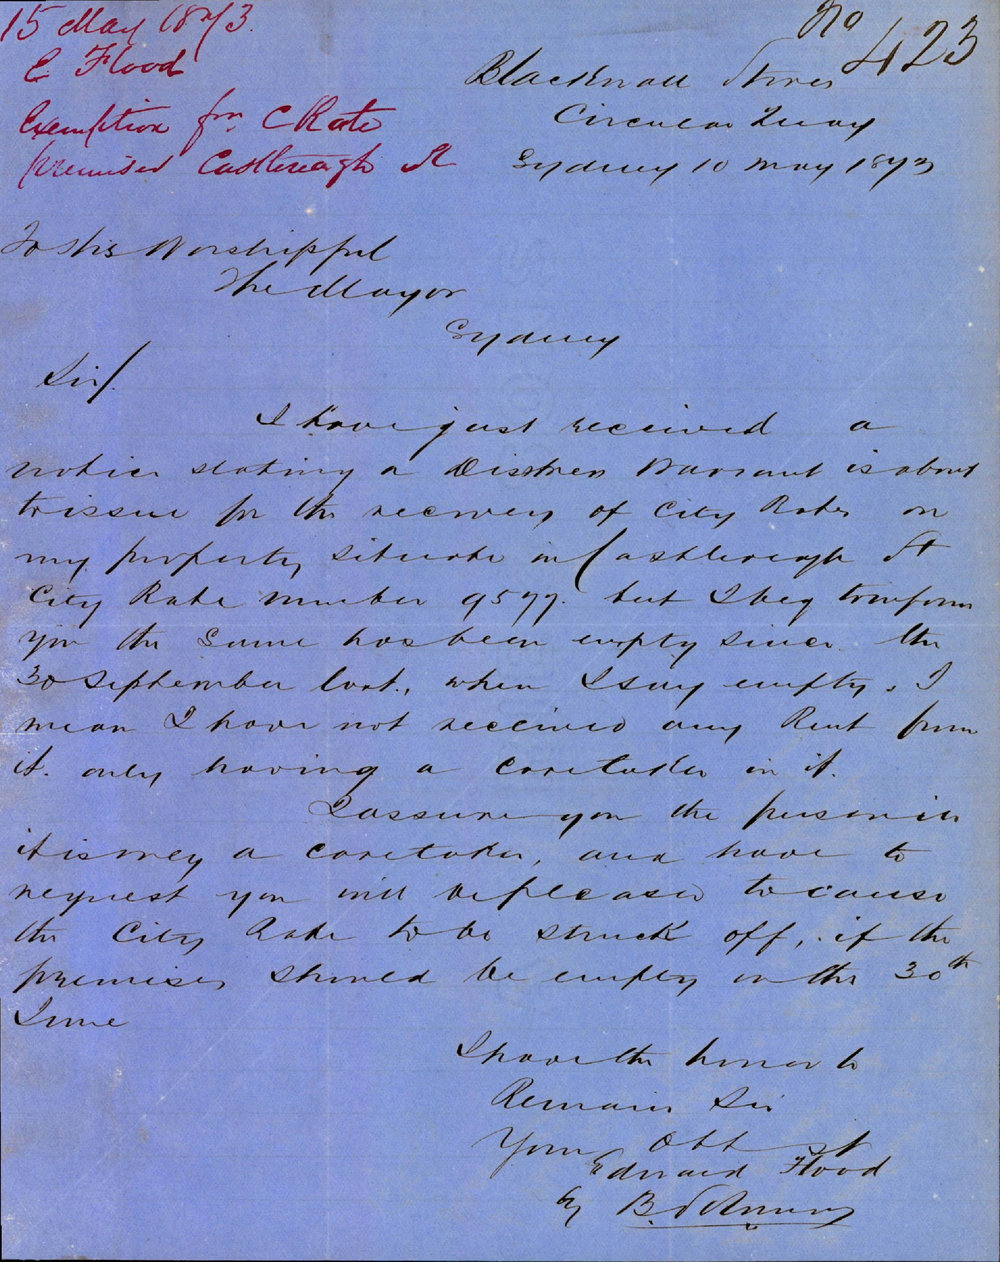 15 May 1873.
E. Flood
Exemption fm C Rate
premises Castlereagh St
No 423
Blackwall Stores
Circular Quay
Sydney 10 May 1873
To His Worshipful
The Mayor
Sydney
Sir/.
I have just received a
notice stating a Distress Warrant is about
to issue for the recovery of City Rates on
my property situate in Castlereagh St
City Rate number 9577. but I beg to inform
you the same has been empty since the
30 September last, when I say empty, I
mean I have not received any Rent from
it. only having a caretaker in it.
I assure you the person in
it is only a caretaker, and have to
request you will be pleased to cause
the City Rate to be struck off, if the
premises should be empty on the 30th
June
I have the honor to
Remain Sir
Your Obt St
Edward Flood
by B.